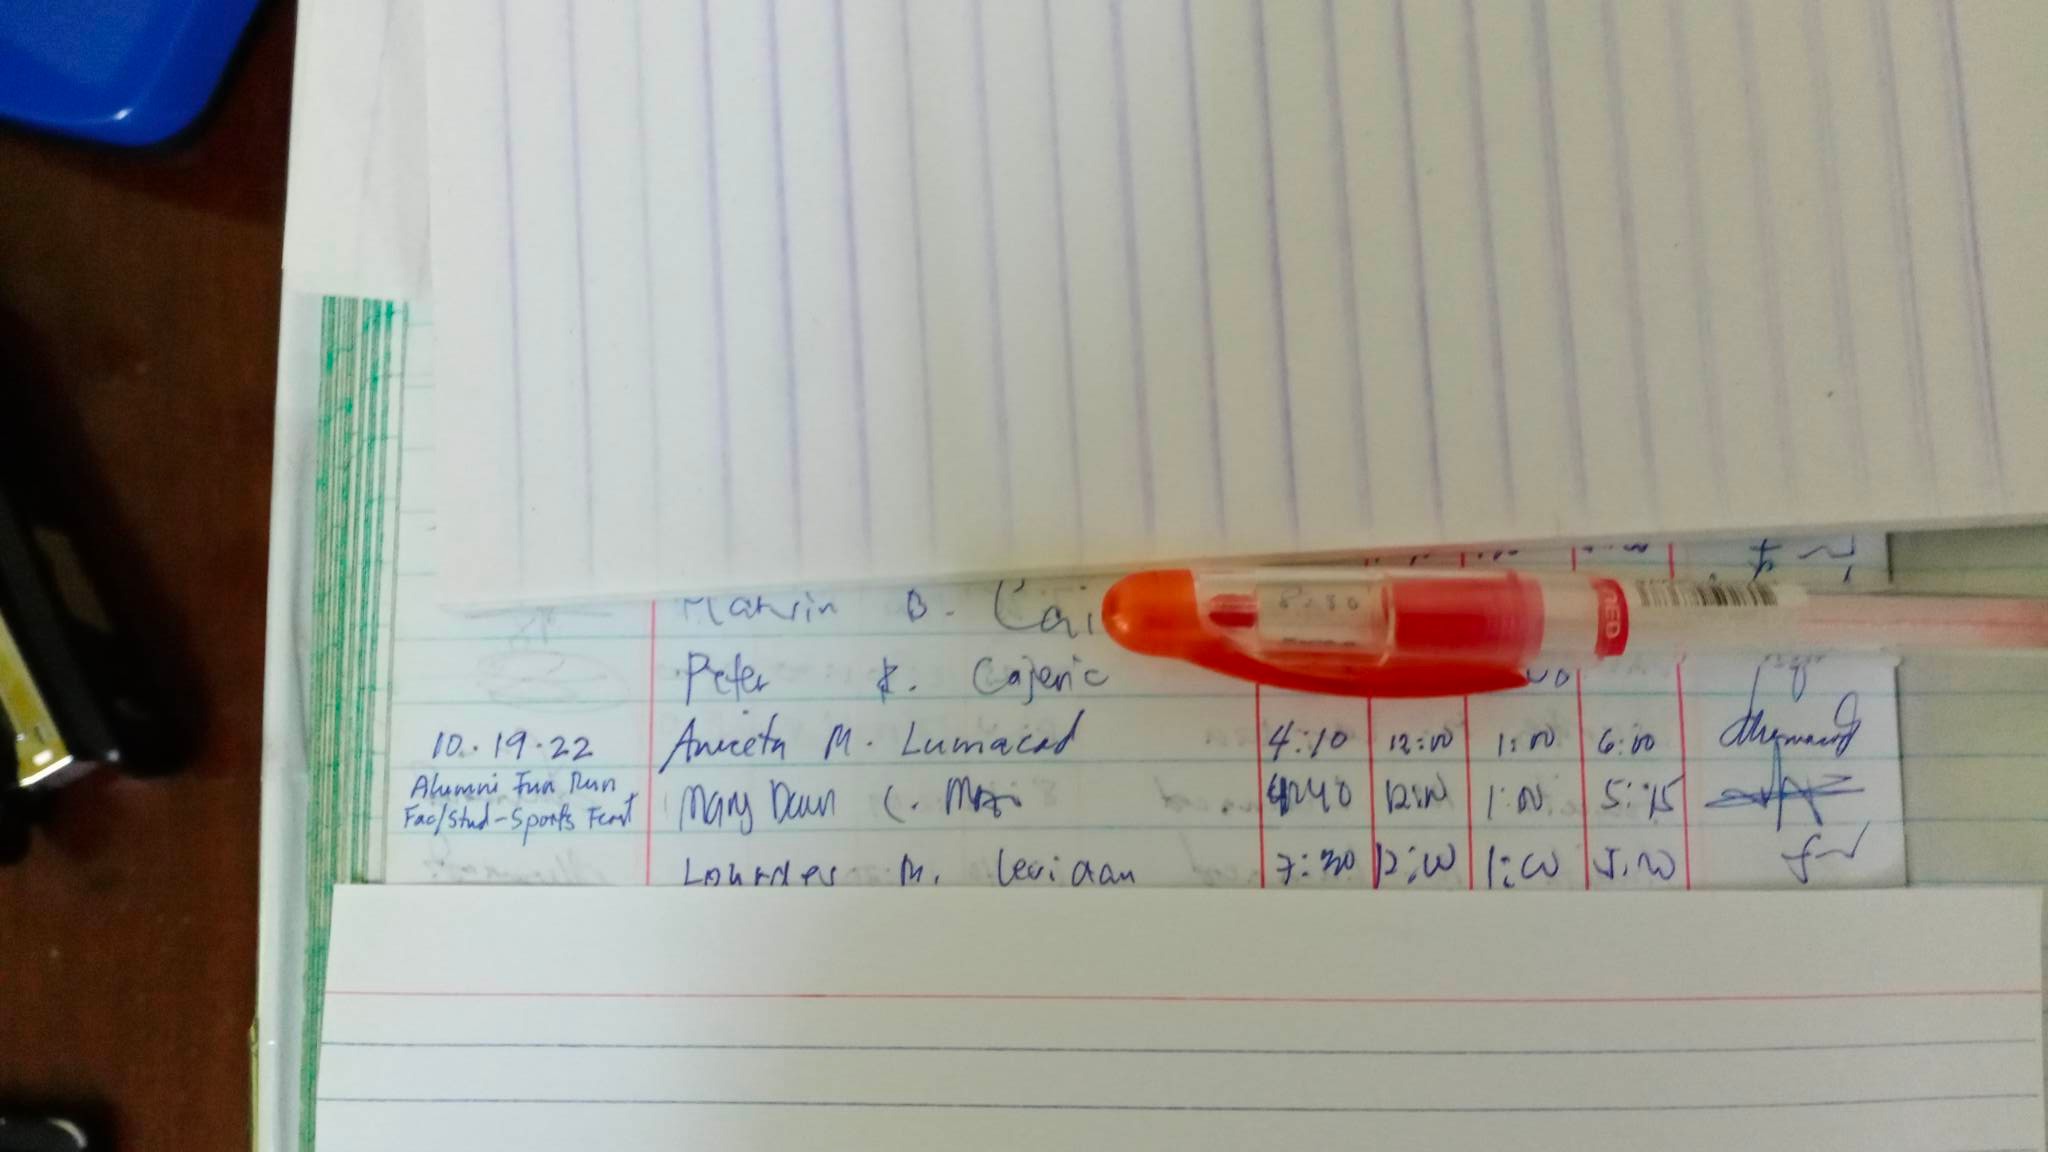 Marvin B. Cai
RED
Peter R. Cajeric
10.19.22 Aniceta M. Lumacad 4:10 12:00 1:00 6:00
Alumni Fun Run Mary Dawn C. 12:00 1:00 5:15
Fac/Stud-Sports Feast
Lourdes M. 7:30 12:00 1:00 5:00